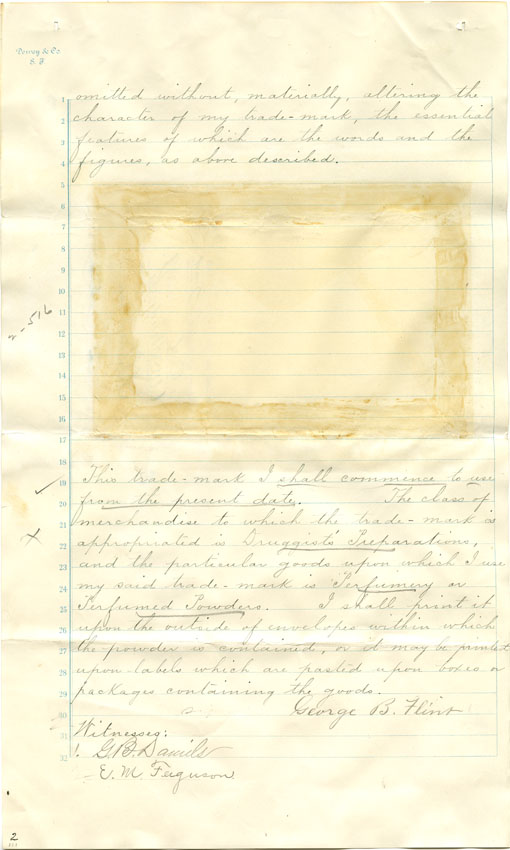 Dewey & Co
S. F.
1 omitted without, materially, altering the
2 character of my trade-mark, the essential
3 features of which are the words and the
4 figures, as above described.
5
6
7
8
9
10
2-516 11
12
13
14
15
16
17
18 This trade-mark I shall commence to use
19 from the present date. The class of
20 merchandise to which the trade-mark is
21 appropriated is Druggists' Preparations,
22 and the particular goods upon which I use
23 my said trade-mark is "Perfumery or
24 Perfumed Powders. I shall print it
25 upon the outside of envelopes within which
26 the powder is contained, or it may be printed
27 upon labels which are pasted upon boxes or
28 packages containing the goods.
29 George B. Flint
30 Witnesses:
31 1. G. B. Daniels
32 E. M. Ferguson
2